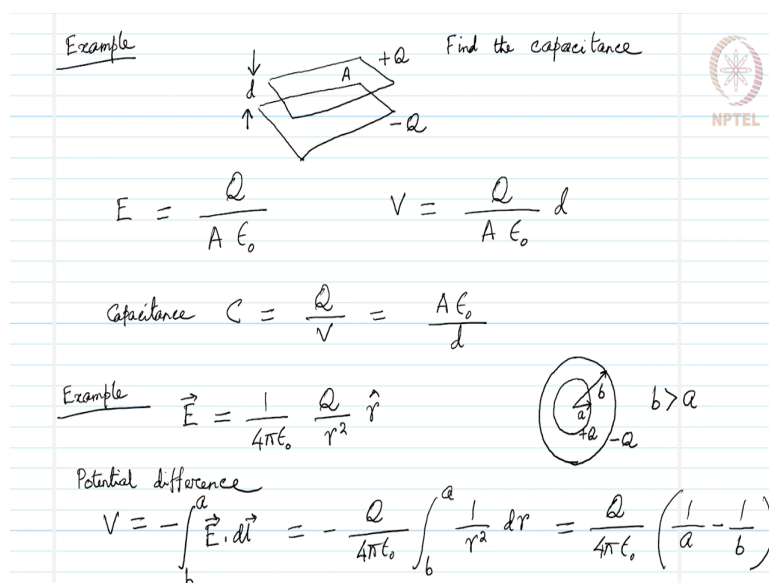 Example
Find the capacitance
↓ d ↑ A +Q
-Q
NPTEL
E = Q / (A ε₀)    V = Q / (A ε₀) d
Capacitance C = Q / V = A ε₀ / d
Example E⃗ = 1/(4πε₀) Q/r² r̂    a b +Q -Q    b > a
Potential difference
V = - ∫_b^a E⃗ . dl⃗ = - Q/(4πε₀) ∫_b^a 1/r² dr = Q/(4πε₀) (1/a - 1/b)